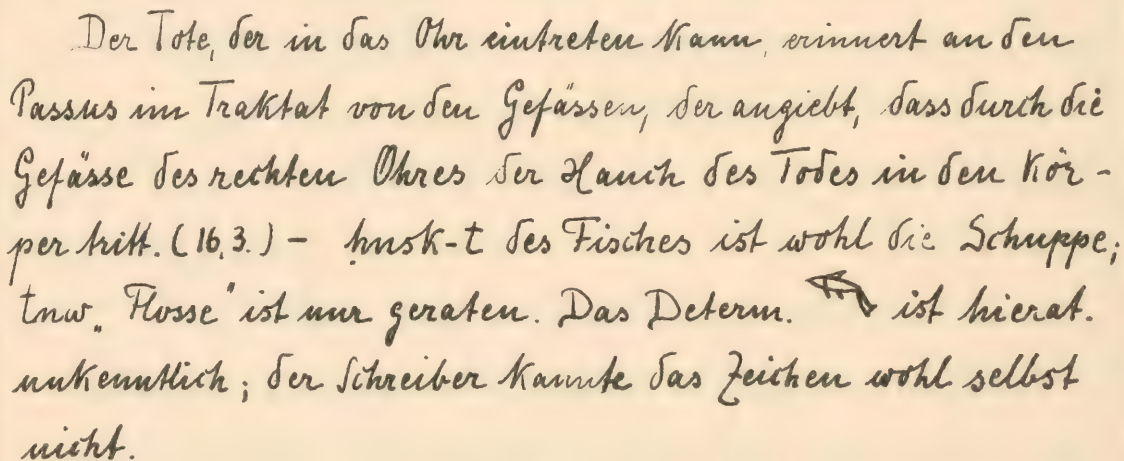 Der Tote, der in das Ohr eintreten kann, erinnert an den
Passus im Traktat von den Gefässen, der angiebt, dass durch die
Gefässe des rechten Ohres der Hauch des Todes in den Kör-
per tritt. (16,3.) - ḥnsk-t des Fisches ist wohl die Schuppe;
tnw „Flosse" ist nur geraten. Das Determ. ist hierat.
unkenntlich; der Schreiber kannte das Zeichen wohl selbst
nicht.